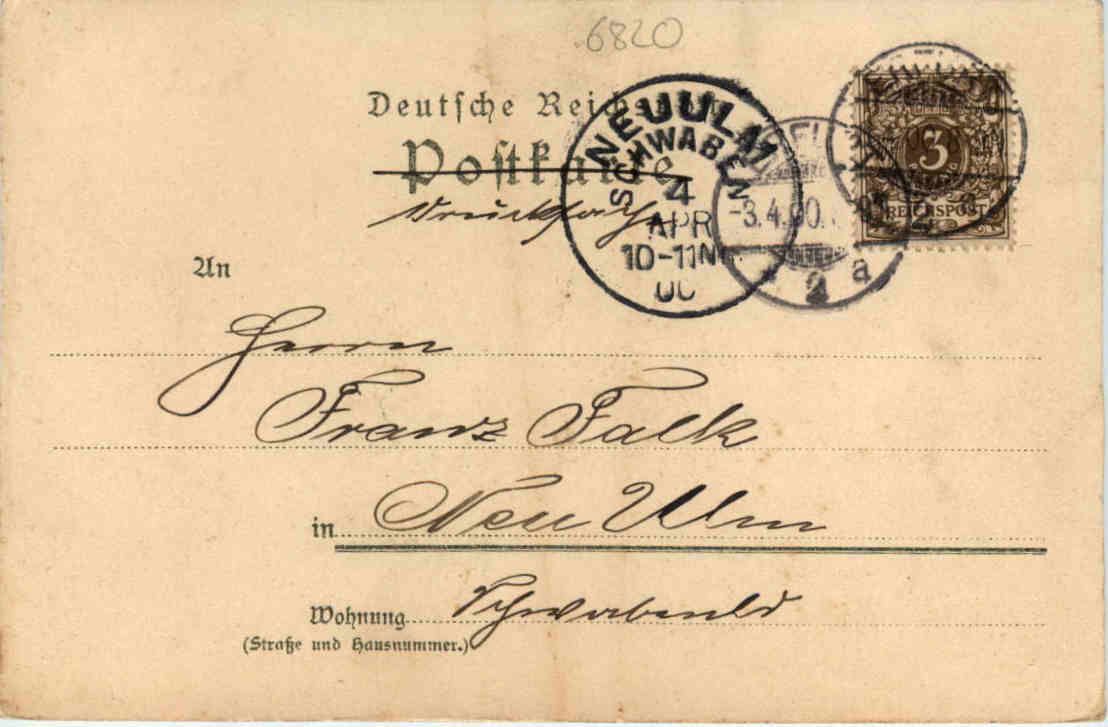 6820
Deutsche Reichspost
Postkarte
Drucksache
NEUULM
SCHWABEN
4
APR
10-11N
00
-3.4.00.
2 a
3
REICHSPOST
An
Herrn
Franz Falk
in Neu Ulm
Wohnung
(Straße und Hausnummer.)